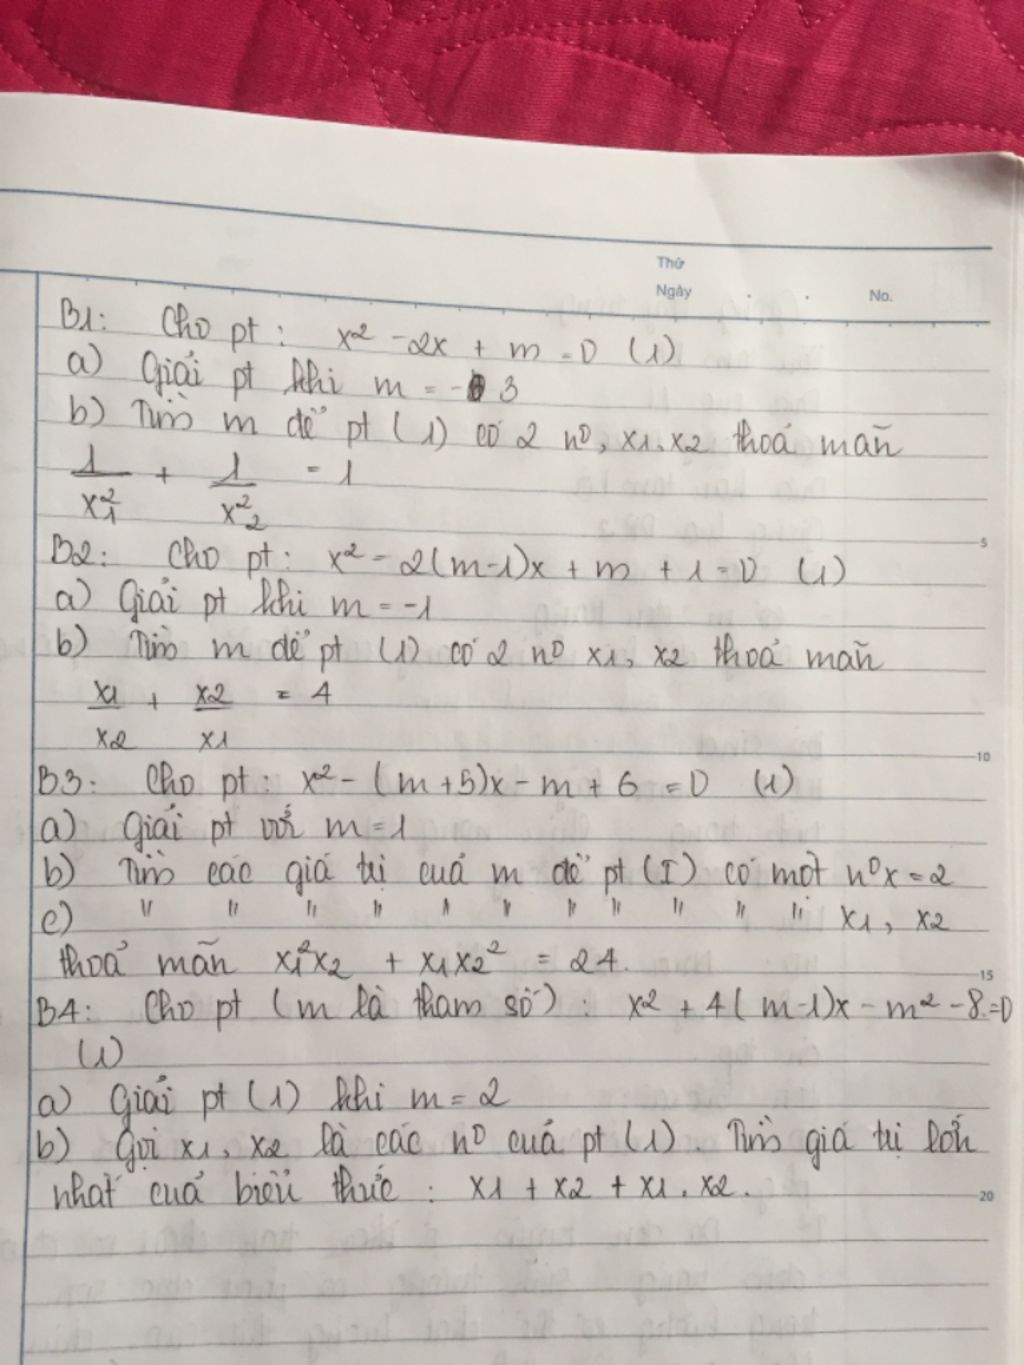 Thứ
Ngày . . No.
B1: Cho pt: x² - 2x + m = 0 (1)
a) Giải pt khi m = - 3
b) Tìm m để pt (1) có 2 n⁰, x1, x2 thoả mãn
1/x₁² + 1/x₂² = 1
5
B2: Cho pt: x² - 2(m-1)x + m + 1 = 0 (1)
a) Giải pt khi m = -1
b) Tìm m để pt (1) có 2 n⁰ x1, x2 thoả mãn
x1/x2 + x2/x1 = 4
10
B3: Cho pt: x² - (m+5)x - m + 6 = 0 (1)
a) Giải pt với m = 1
b) Tìm các giá trị củả m để pt (I) có một n⁰ x = 2
c) " " " " " " " " " " " x1, x2
thoả mãn x₁²x2 + x1x2² = 24.
15
B4: Cho pt (m là tham số): x² + 4(m-1)x - m² - 8 = 0
(1)
a) Giải pt (1) khi m = 2
b) Gọi x1, x2 là các n⁰ củả pt (1). Tìm giá trị lớn
nhất củả biểu thức: x1 + x2 + x1.x2.
20